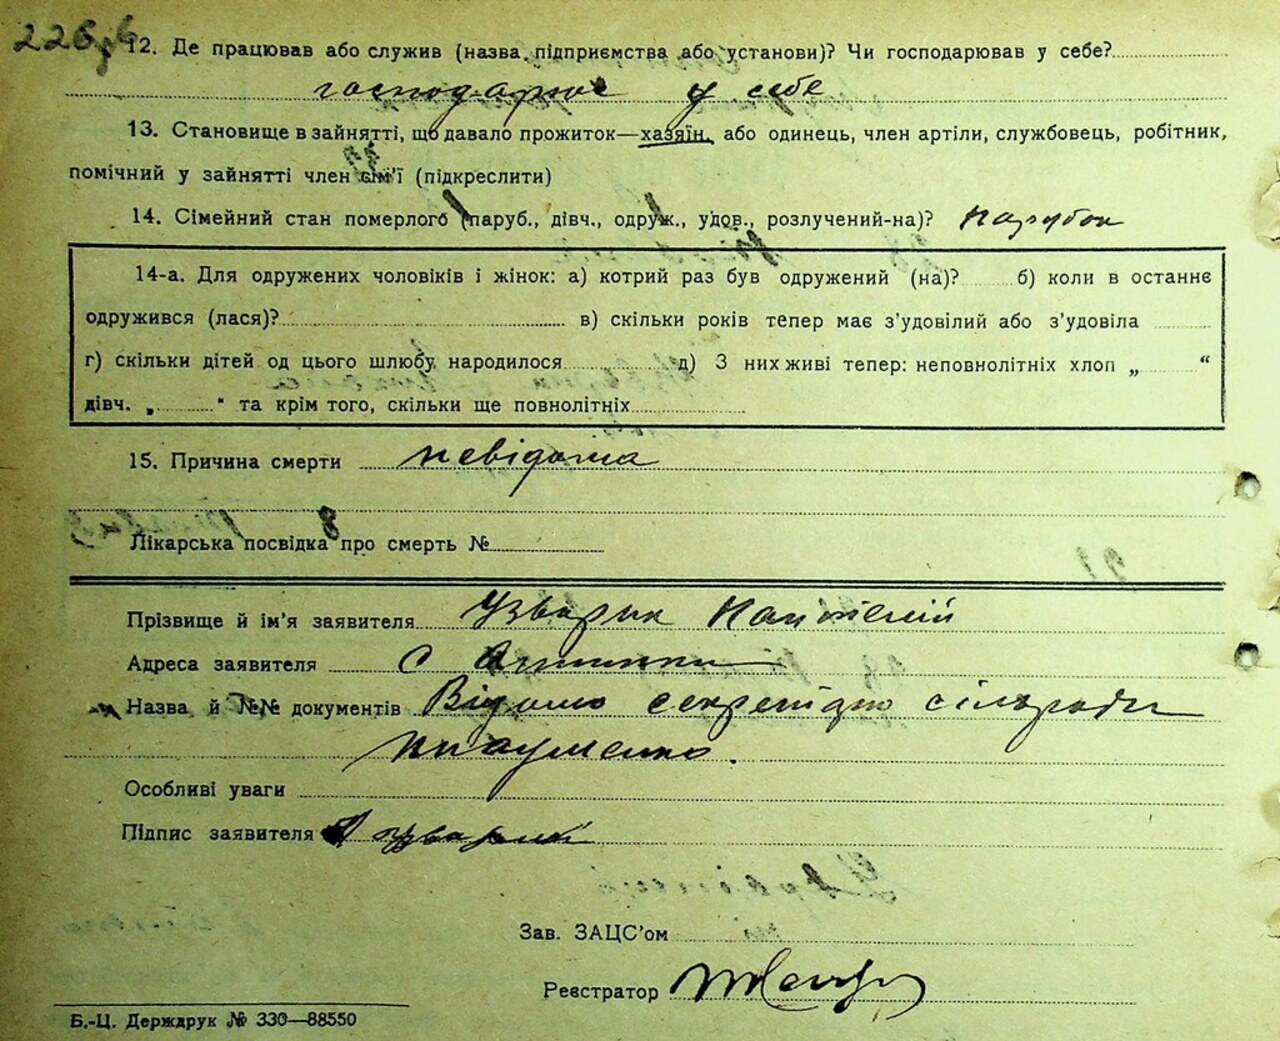 226
12. Де працював або служив (назва підприємства або установи)? Чи господарював у себе?
господарює у себе
13. Становище в зайнятті, що давало прожиток—хазяїн, або одинець, член артіли, службовець, робітник,
помічний у зайнятті член сім'ї (підкреслити)
14. Сімейний стан померлого (паруб., дівч., одруж., удов., розлучений-на)? парубок
14-а. Для одружених чоловіків і жінок: а) котрий раз був одружений (на)? б) коли в останнє
одружився (лася)? в) скільки років тепер має з'удовілий або з'удовіла
г) скільки дітей од цього шлюбу народилося д) З них живі тепер: неповнолітніх хлоп „ “
дівч. „ “ та крім того, скільки ще повнолітніх
15. Причина смерти невідома
Лікарська посвідка про смерть №
Прізвище й ім'я заявителя Узварик
Адреса заявителя с
Назва й №№ документів Відомо секретарю сільради
Особливі уваги
Підпис заявителя
Зав. ЗАЦС'ом
Реєстратор
Б.-Ц. Держдрук № 330—88550